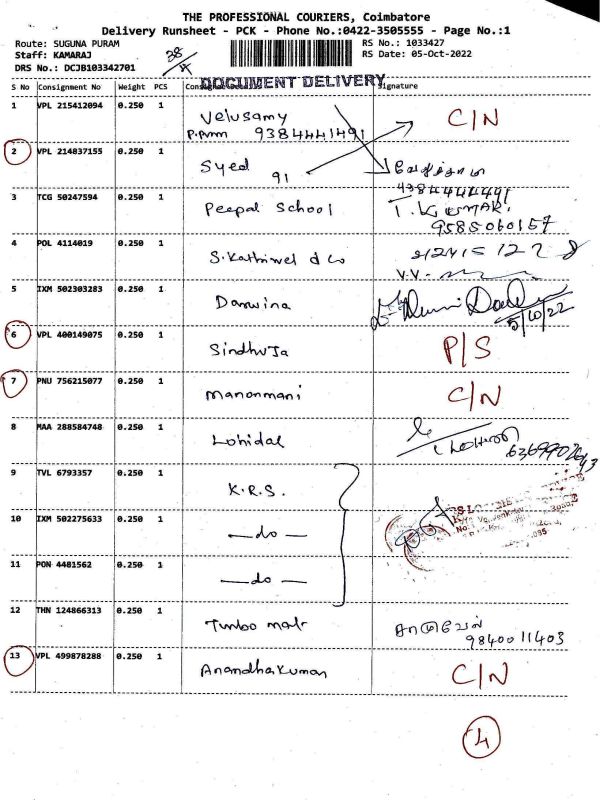 THE PROFESSIONAL COURIERS, Coimbatore
Delivery Runsheet - PCK - Phone No.:0422-3505555 - Page No.:1
Route: SUGUNA PURAM
RS No.: 1033427
Staff: KAMARAJ
RS Date: 05-Oct-2022
DRS No.: DCJB103342701
DOCUMENT DELIVERY
S No Consignment No Weight PCS Signature
1 VPL 215412094 0.250 1 Velusamy C/N
P.Pvm 9384441491
2 VPL 214837155 0.250 1 Syed
91
9384444491
3 TCG 50247594 0.250 1 Peepal School I. KUMAR.
9585060157
4 POL 4114019 0.250 1 S.Kathirvel & Co
V.V-
5 IXM 502303283 0.250 1 Darwina
5/10/22
6 VPL 400149075 0.250 1 Sindhuja P/S
7 PNU 756215077 0.250 1 Manonmani C/N
8 MAA 288584748 0.250 1 Lohidal
9 TVL 6793357 0.250 1 K.R.S.
10 IXM 502275633 0.250 1 —do—
11 PON 4481562 0.250 1 —do—
12 THN 124866313 0.250 1 Turbo mat சாமுவேல்
9840011403
13 VPL 499878288 0.250 1 Anandhakumar C/N
4